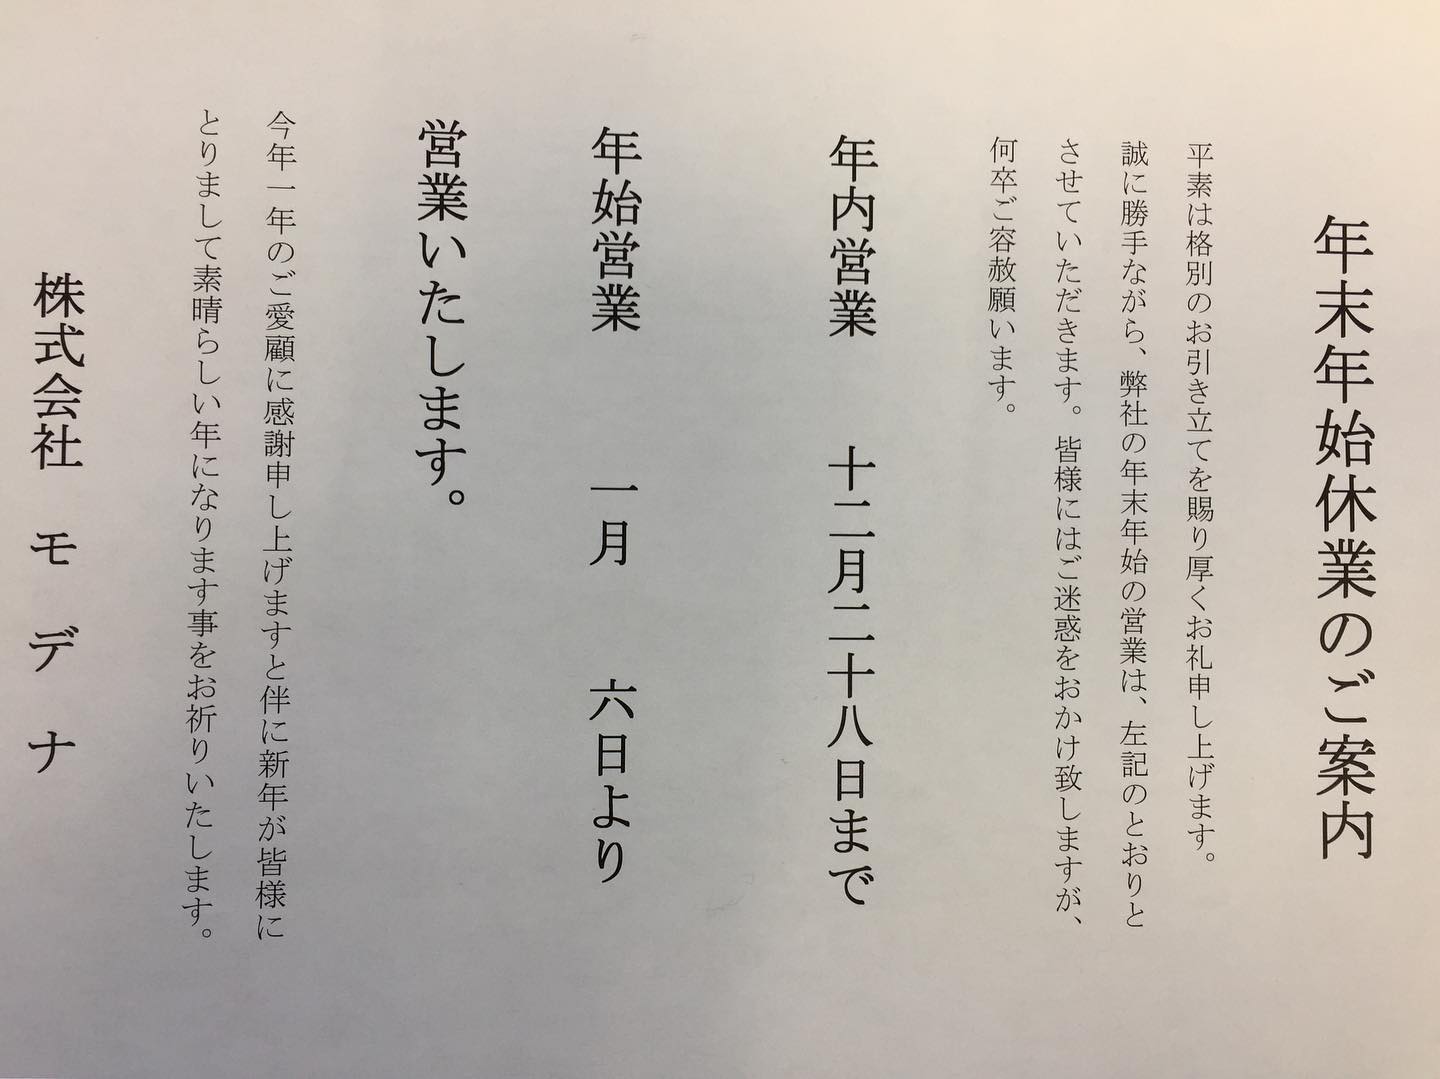 年末年始休業のご案内
平素は格別のお引き立てを賜り厚くお礼申し上げます。
誠に勝手ながら、弊社の年末年始の営業は、左記のとおりと
させていただきます。皆様にはご迷惑をおかけ致しますが、
何卒ご容赦願います。
年内営業　十二月二十八日まで
年始営業　一月　六日より
営業いたします。
今年一年のご愛顧に感謝申し上げますと伴に新年が皆様に
とりまして素晴らしい年になります事をお祈りいたします。
株式会社　モデナ